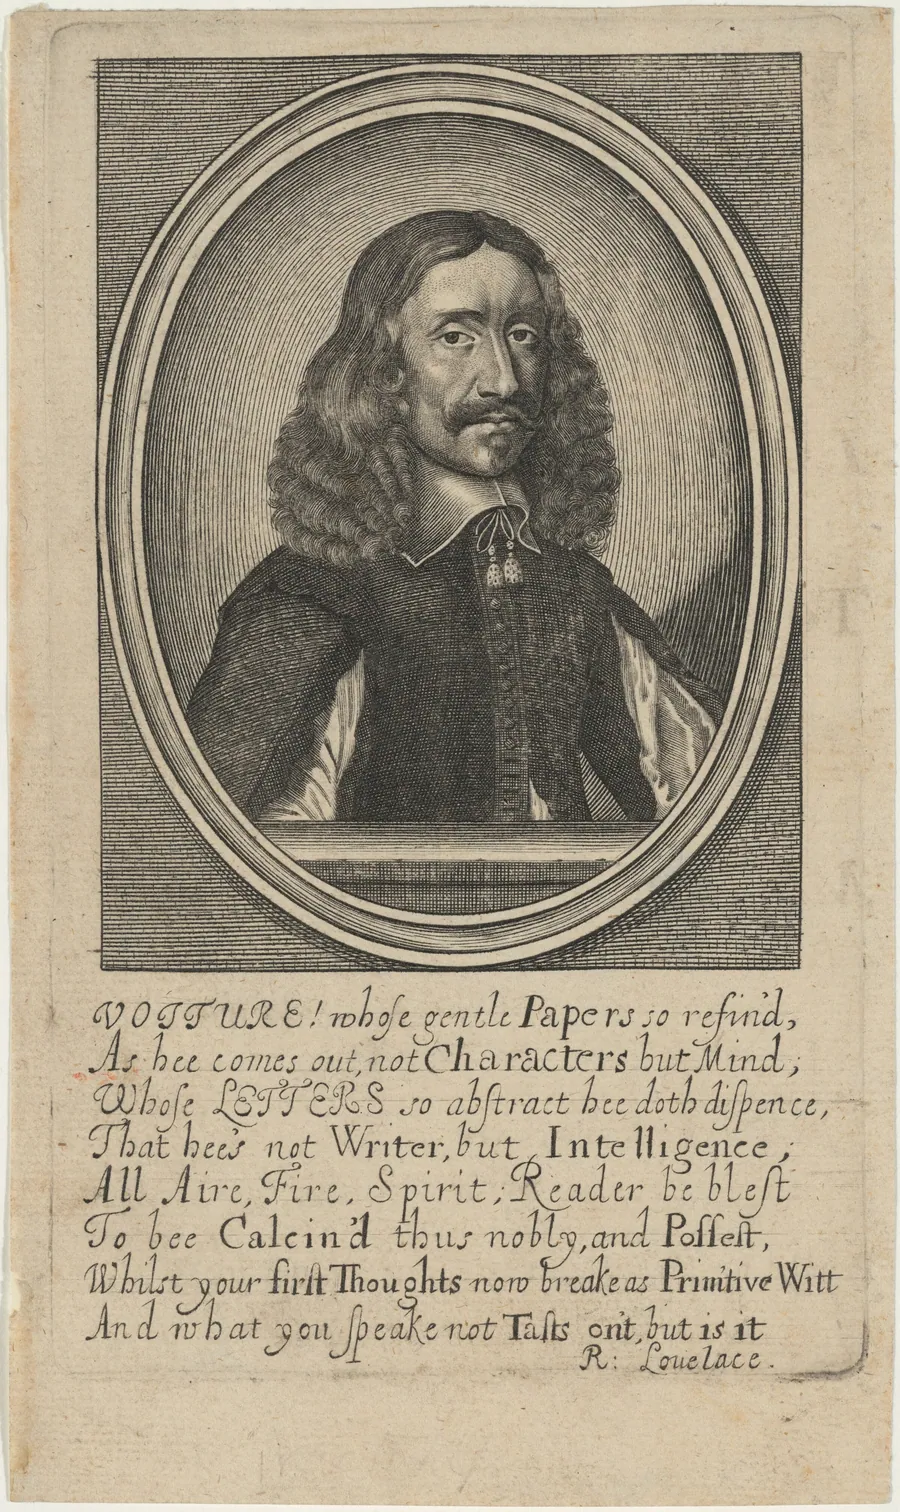 VOITURE! whoſe gentle Papers so refin'd,
As hee comes out, not Characters but Mind;
Whoſe LETTERS so abſtract hee doth diſpence,
That hee's not Writer, but Intelligence;
All Aire, Fire, Spirit; Reader be bleſt
To bee Calcin'd thus nobly, and Poſſeſt,
Whilst your firſt Thoughts now breake as Primitive Witt
And what you ſpeake not Taſts on't, but is it
R: Lovelace.